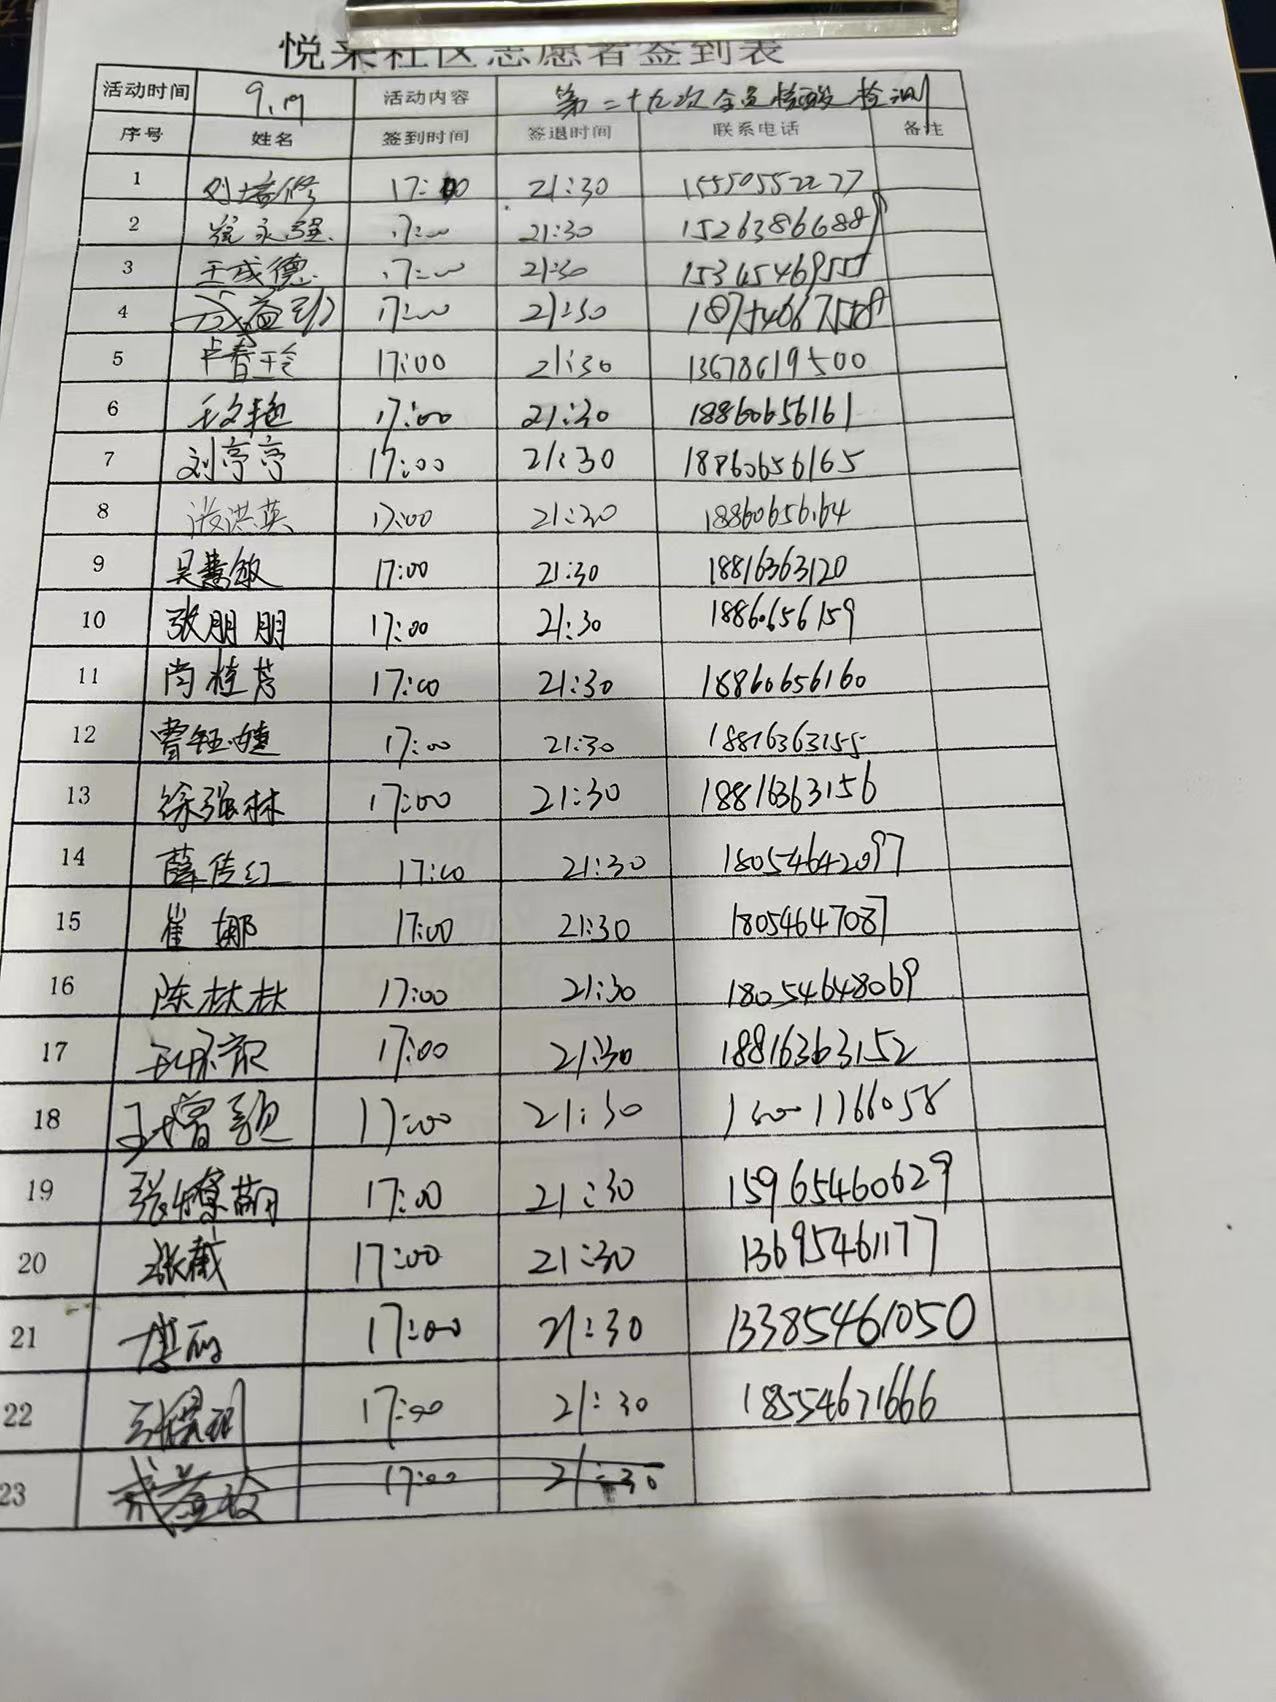 悦来社区志愿者签到表
活动时间 9.19 活动内容 第二十九次全员核酸检测
序号 姓名 签到时间 签退时间 联系电话 备注
1 刘培修 17:00 21:30 15550552277
2 永强 17:00 21:30 15263866889
3 王成德 17:00 21:30 15345469555
4 17:00 21:30
5 卢春玲 17:00 21:30 13678619500
6 王文艳 17:00 21:30 18860656161
7 刘亭亭 17:00 21:30 18860656165
8 洪英 17:00 21:30 18860656164
9 吴慧敏 17:00 21:30 18816363120
10 张朋朋 17:00 21:30 18860656159
11 尚桂芳 17:00 21:30 18860656160
12 曹钰婕 17:00 21:30 18816363155
13 徐强林 17:00 21:30 18816363156
14 薛传红 17:00 21:30 18054642097
15 崔娜 17:00 21:30 18054647087
16 陈林林 17:00 21:30 18054648069
17 17:00 21:30 18816363152
18 17:00 21:30
19 17:00 21:30 15965460629
20 张戴 17:00 21:30 13695461177
21 17:00 21:30 13385461050
22 17:00 21:30 18554671666
23 17:00 21:30